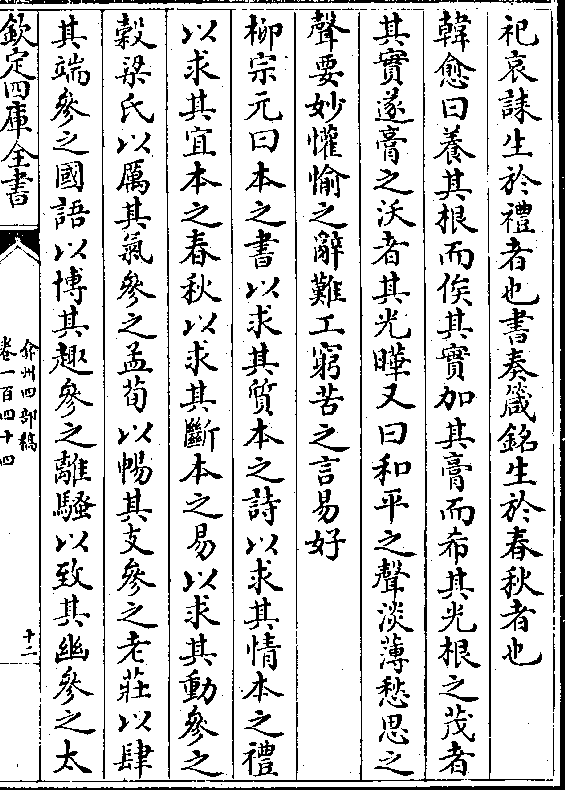 祀哀誄生於禮者也書奏箴銘生於春秋者也
韓愈曰養其根而俟其實加其膏而希其光根之茂者
其實遂膏之沃者其光曄又曰和平之聲淡薄愁思之
聲要妙懽愉之辭難工窮苦之言易好
柳宗元曰本之書以求其質本之詩以求其情本之禮
以求其宜本之春秋以求其斷本之易以求其動參之
穀梁氏以厲其氣參之孟荀以暢其支參之老莊以肆
其端參之國語以博其趣參之離騷以致其幽參之太
欽定四庫全書
弇州四部稿
卷一百四十四
十二